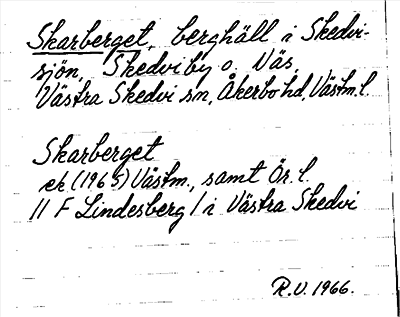 Skarberget, berghäll i Skedvi-
sjön, Skedviby o. Väs,
Västra Skedvi sn, Åkerbo hd, Västm. l.
Skarberget
ek (1965) Västm., samt Ör. l.
11 F Lindesberg / i Västra Skedvi
R.U. 1966.